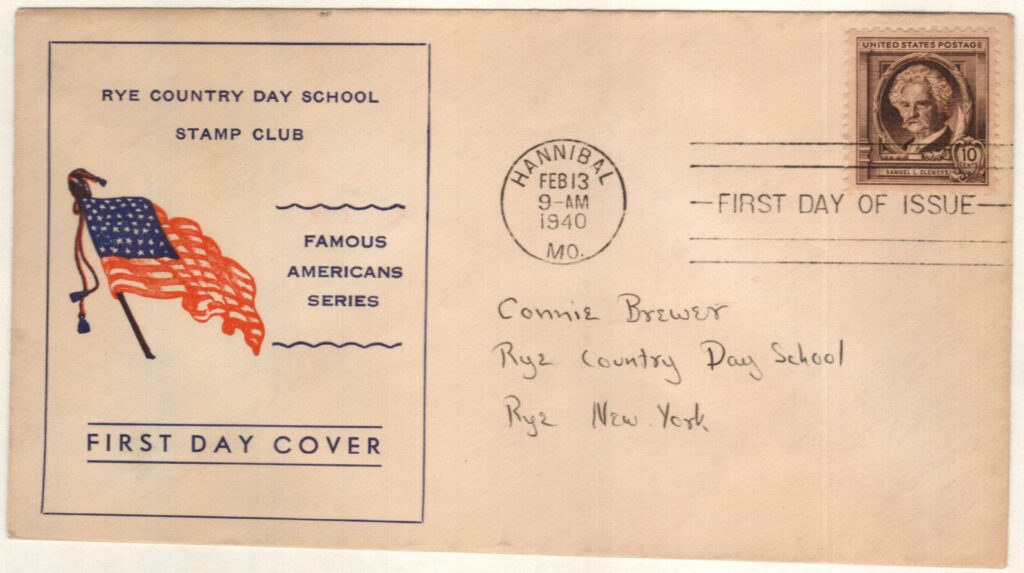 RYE COUNTRY DAY SCHOOL
STAMP CLUB
FAMOUS
AMERICANS
SERIES
FIRST DAY COVER
HANNIBAL
FEB 13
9-AM
1940
MO.
UNITED STATES POSTAGE
10
SAMUEL L. CLEMENS
FIRST DAY OF ISSUE
Connie Brewer
Rye Country Day School
Rye New York